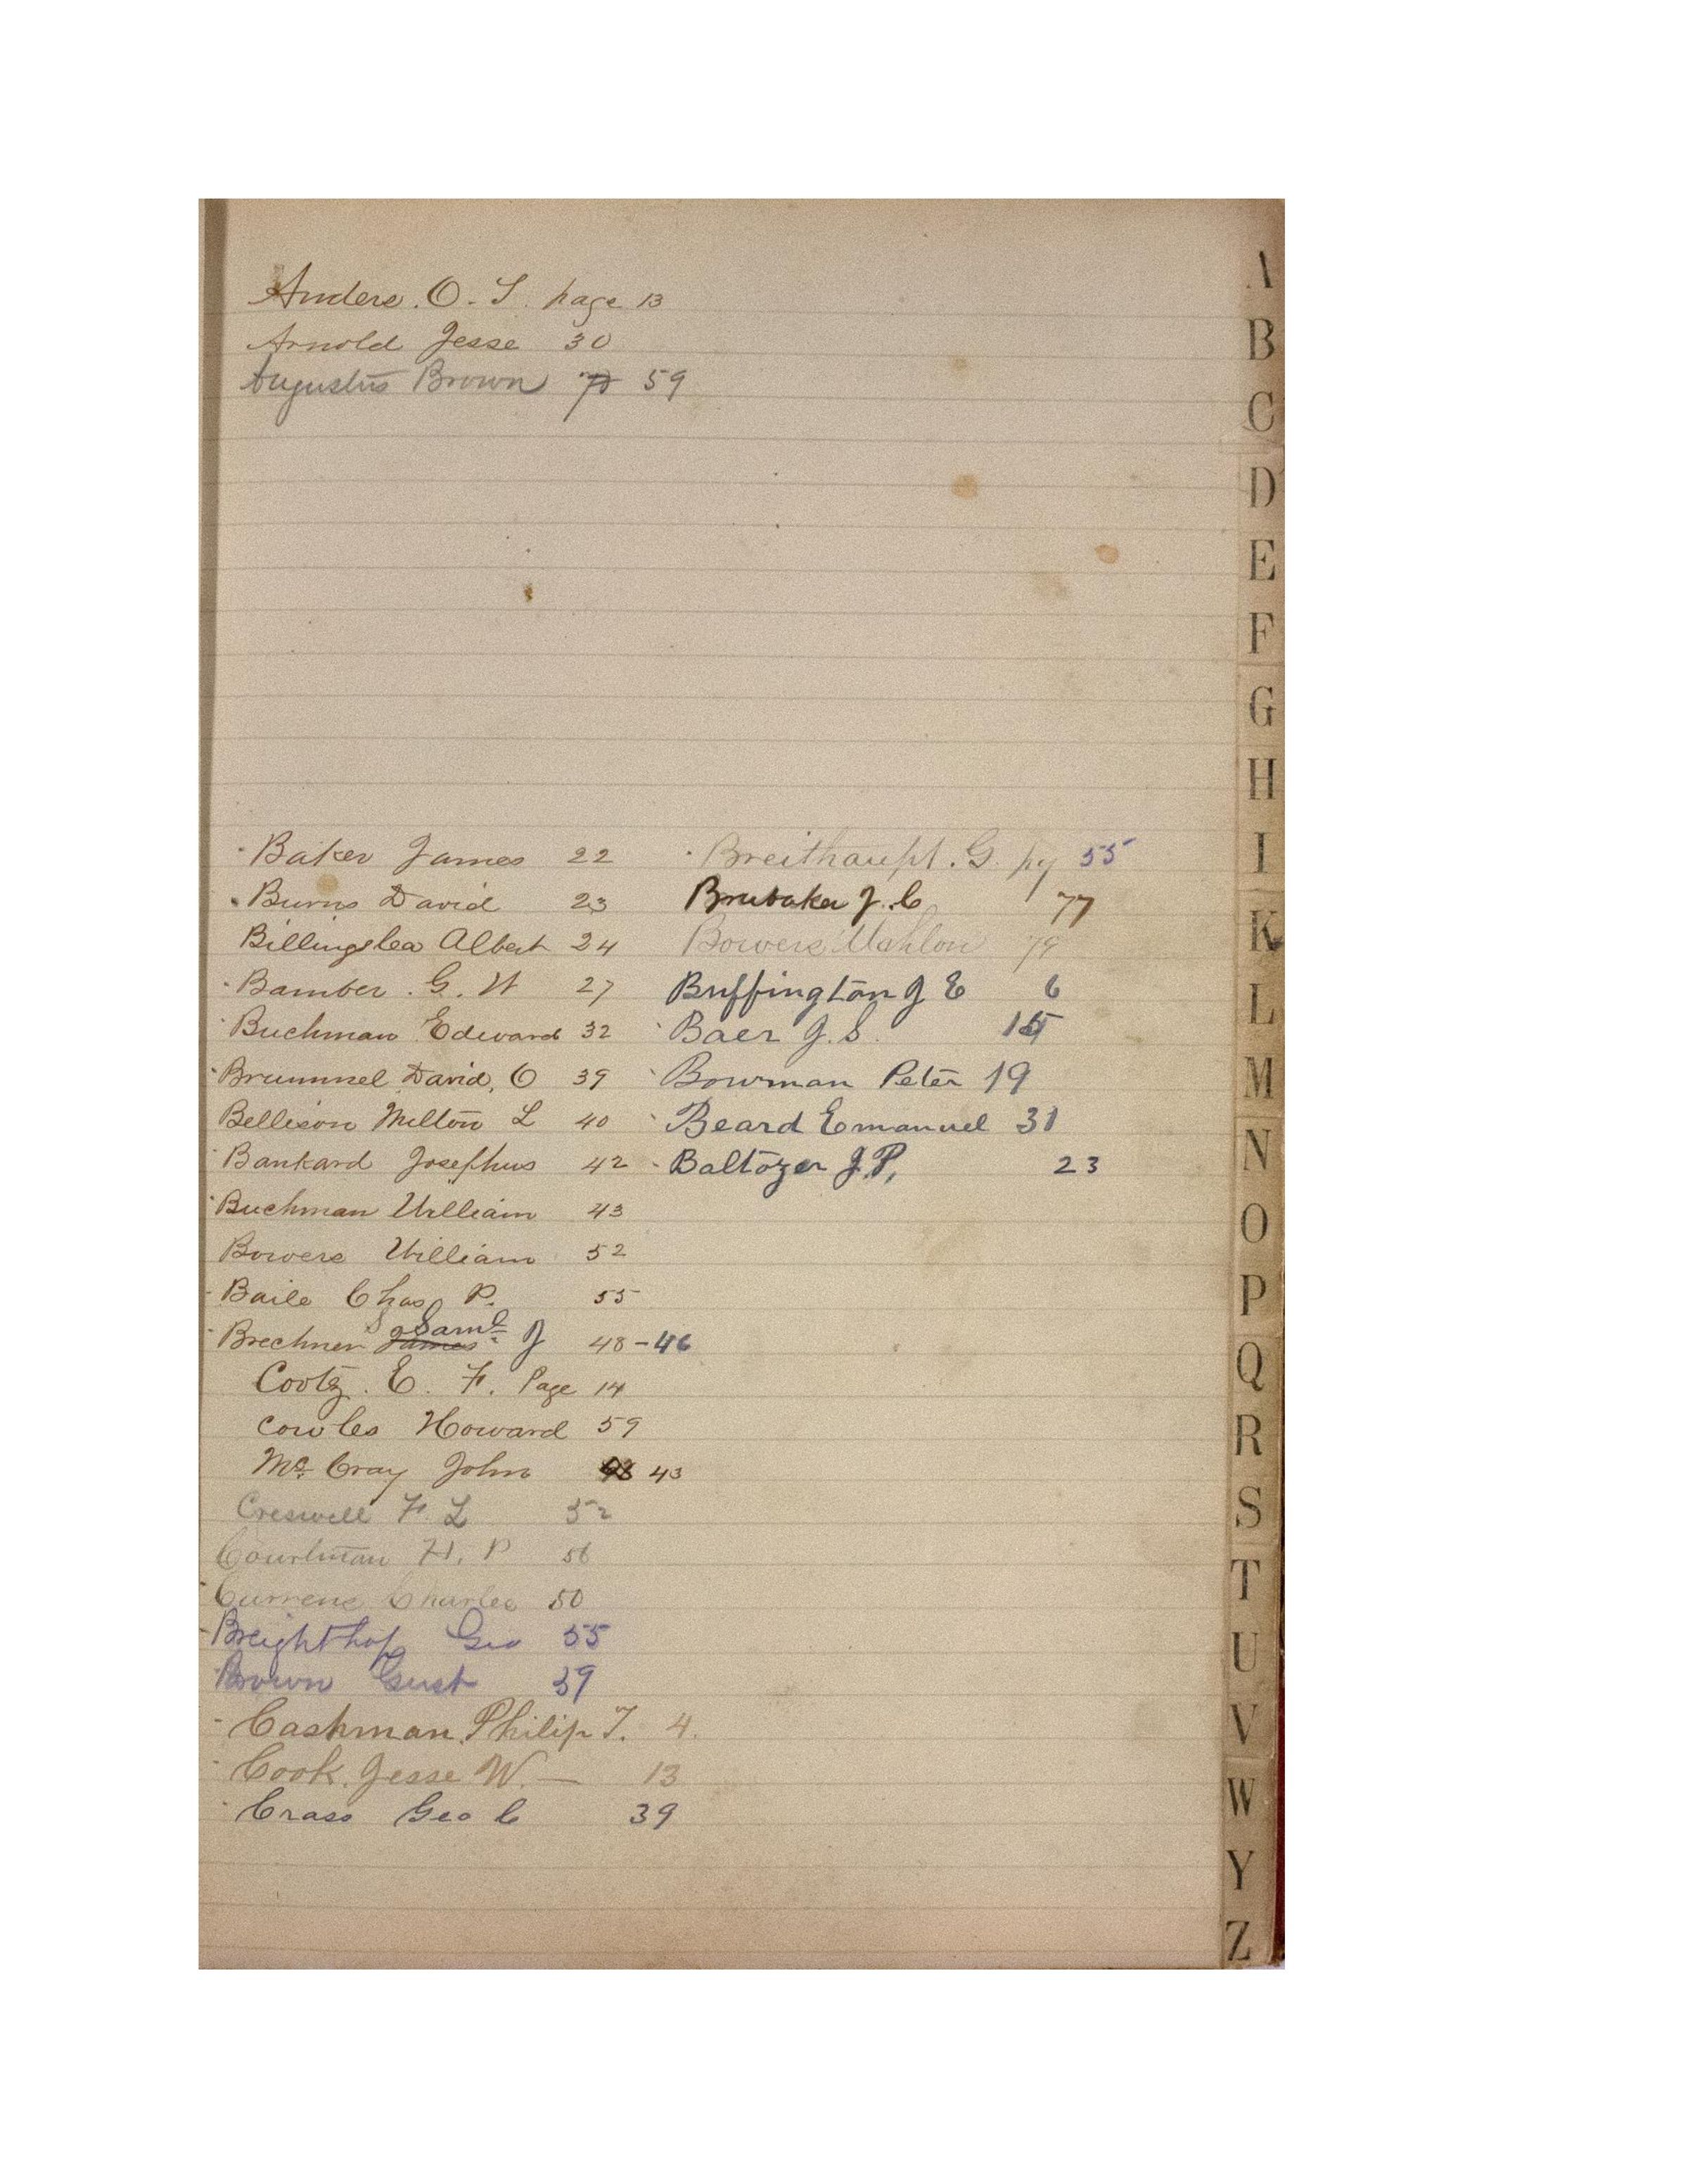 Anders. O. S. page 13
Arnold Jesse 30
Augustus Brown 59
Baker James 22
Burns David 23
Billingslea Albert 24
Bamber. G. W 27
Buchman Edward 32
Brummel David, O 39
Bellison Milton L 40
Bankard Josephus 42
Buchman William 43
Bowers William 52
Baile Chas P. 55
Brechner James Saml. J 48-46
Breithaupt. G. pg 55
Brubaker J. C 77
Bowers Mahlon 79
Buffington J E 6
Baer J. S. 15
Bowman Peter 19
Beard Emanuel 31
Baltozer J. P, 23
Cootz. E. F. Page 14
Cowles Howard 59
Mc. Cray John 43
Creswell F. L 52
Courtman H. P 56
Currens Charles 50
Breighthop Geo 55
Brown Gust 39
Cashman. Philip T. 4.
Cook. Jesse W. — 13
Crass Geo C 39
A
B
C
D
E
F
G
H
I
K
L
M
N
O
P
Q
R
S
T
U
V
W
Y
Z